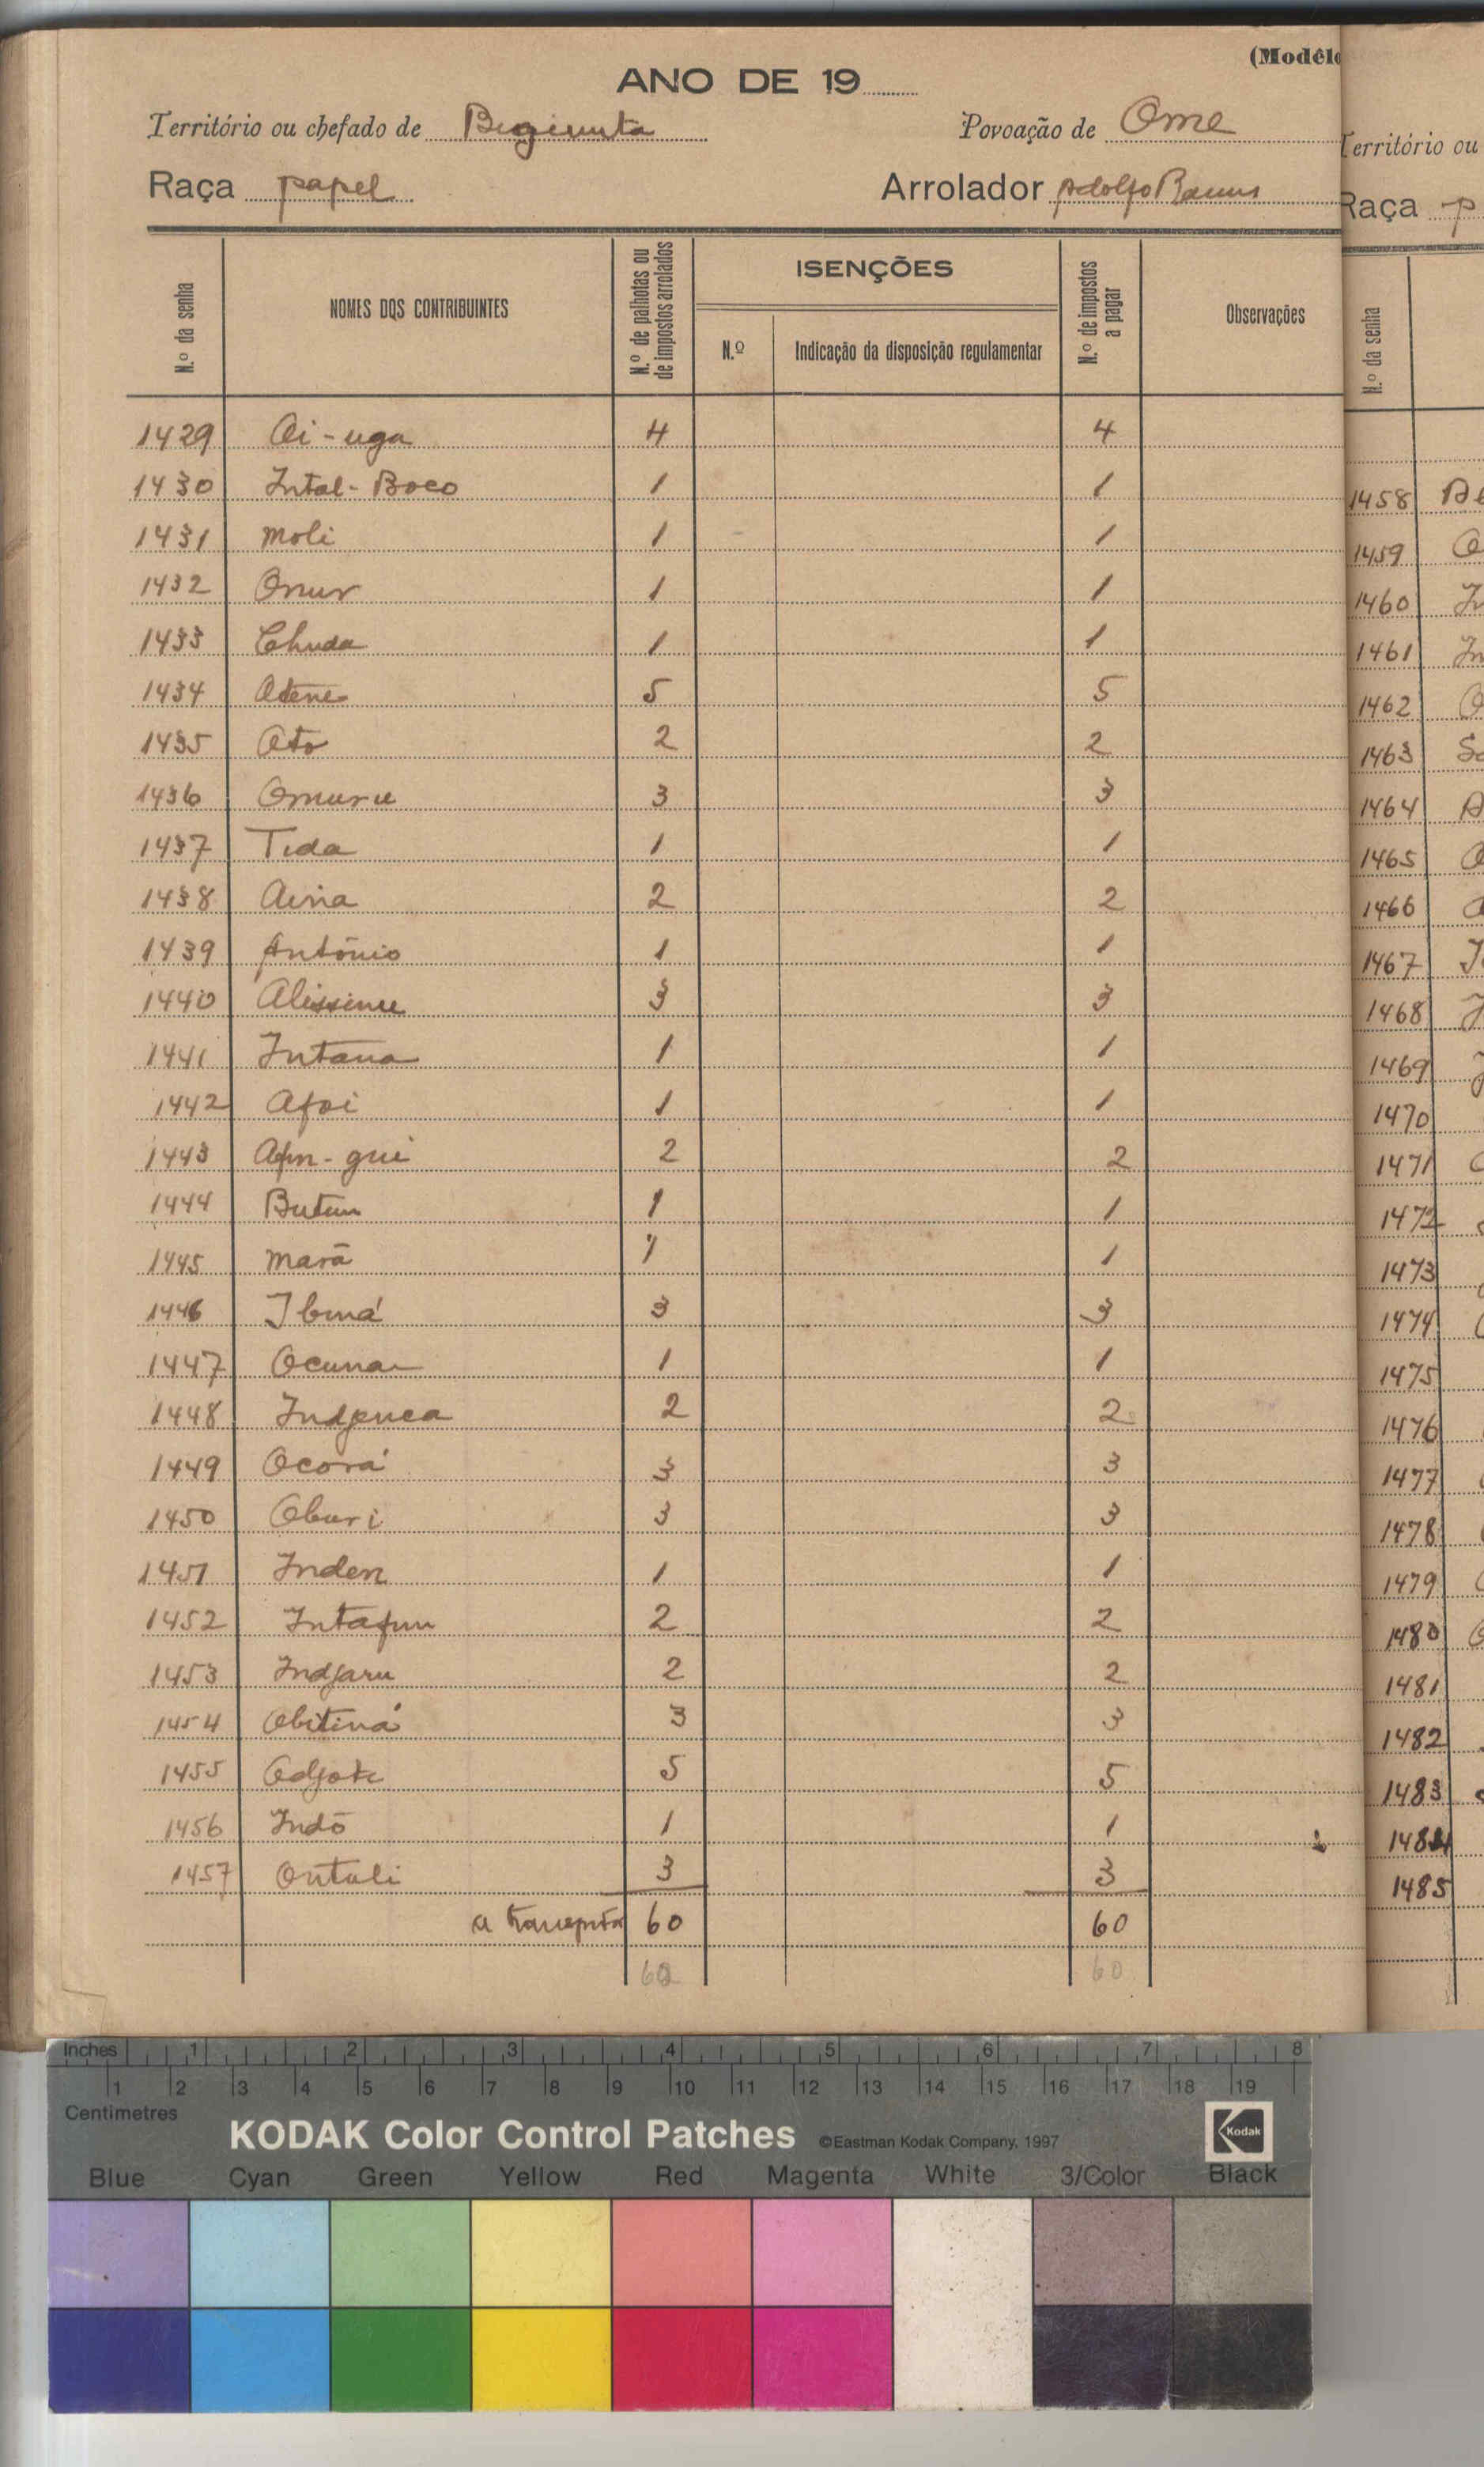 (Modêlo
ANO DE 19
Território ou chefado de Bigimita Povoação de Ome
Raça papel Arrolador Adolfo Ramos
N.º da senha NOMES DOS CONTRIBUINTES N.º de palhotas ou de impostos arrolados ISENÇÕES N.º de impostos a pagar Observações
N.º Indicação da disposição regulamentar
1429 Oi-uga 4 4
1430 Intal-Boco 1 1
1431 Moli 1 1
1432 Onur 1 1
1433 Chuda 1 1
1434 Atene 5 5
1435 Ato 2 2
1436 Omuru 3 3
1437 Tida 1 1
1438 2 2
1439 António 1 1
1440 3 3
1441 Intana 1 1
1442 Afoi 1 1
1443 2 2
1444 Butim 1 1
1445 Marã 1 1
1446 3 3
1447 1 1
1448 2 2
1449 Ocorá 3 3
1450 Oburi 3 3
1451 Inden 1 1
1452 2 2
1453 Indjaru 2 2
1454 Obitiná 3 3
1455 5 5
1456 Indõ 1 1
1457 Ontuli 3 3
60 60
60 60
Território ou
Raça p
N.º da senha
1458
1459
1460
1461
1462
1463
1464
1465
1466
1467
1468
1469
1470
1471
1472
1473
1474
1475
1476
1477
1478
1479
1480
1481
1482
1483
1484
1485
Inches 1 2 3 4 5 6 7 8
1 2 3 4 5 6 7 8 9 10 11 12 13 14 15 16 17 18 19
Centimetres
KODAK Color Control Patches ©Eastman Kodak Company, 1997 Kodak
Blue Cyan Green Yellow Red Magenta White 3/Color Black